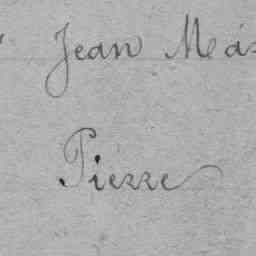 Jean
Pierre